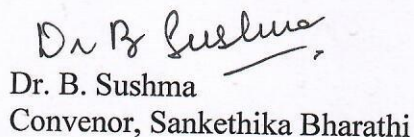 Dr B Sushma
Dr. B. Sushma
Convenor, Sankethika Bharathi